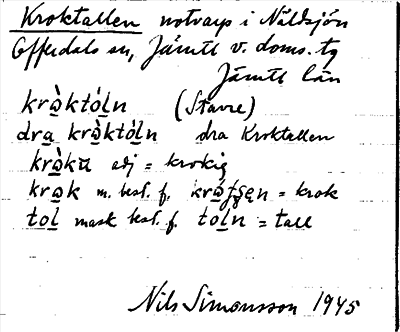 Kroktallen notvarp i Näldsjön
Offerdals sn, Jämtl v. doms. tg
Jämtl län
krə̀któln (Stavre)
dra krə̀któln dra Kroktallen
krə̀kŭ adj = krokig
krək m. best. f. = krok
tol mask best. f. tòln = tall
Nils Simonsson 1945